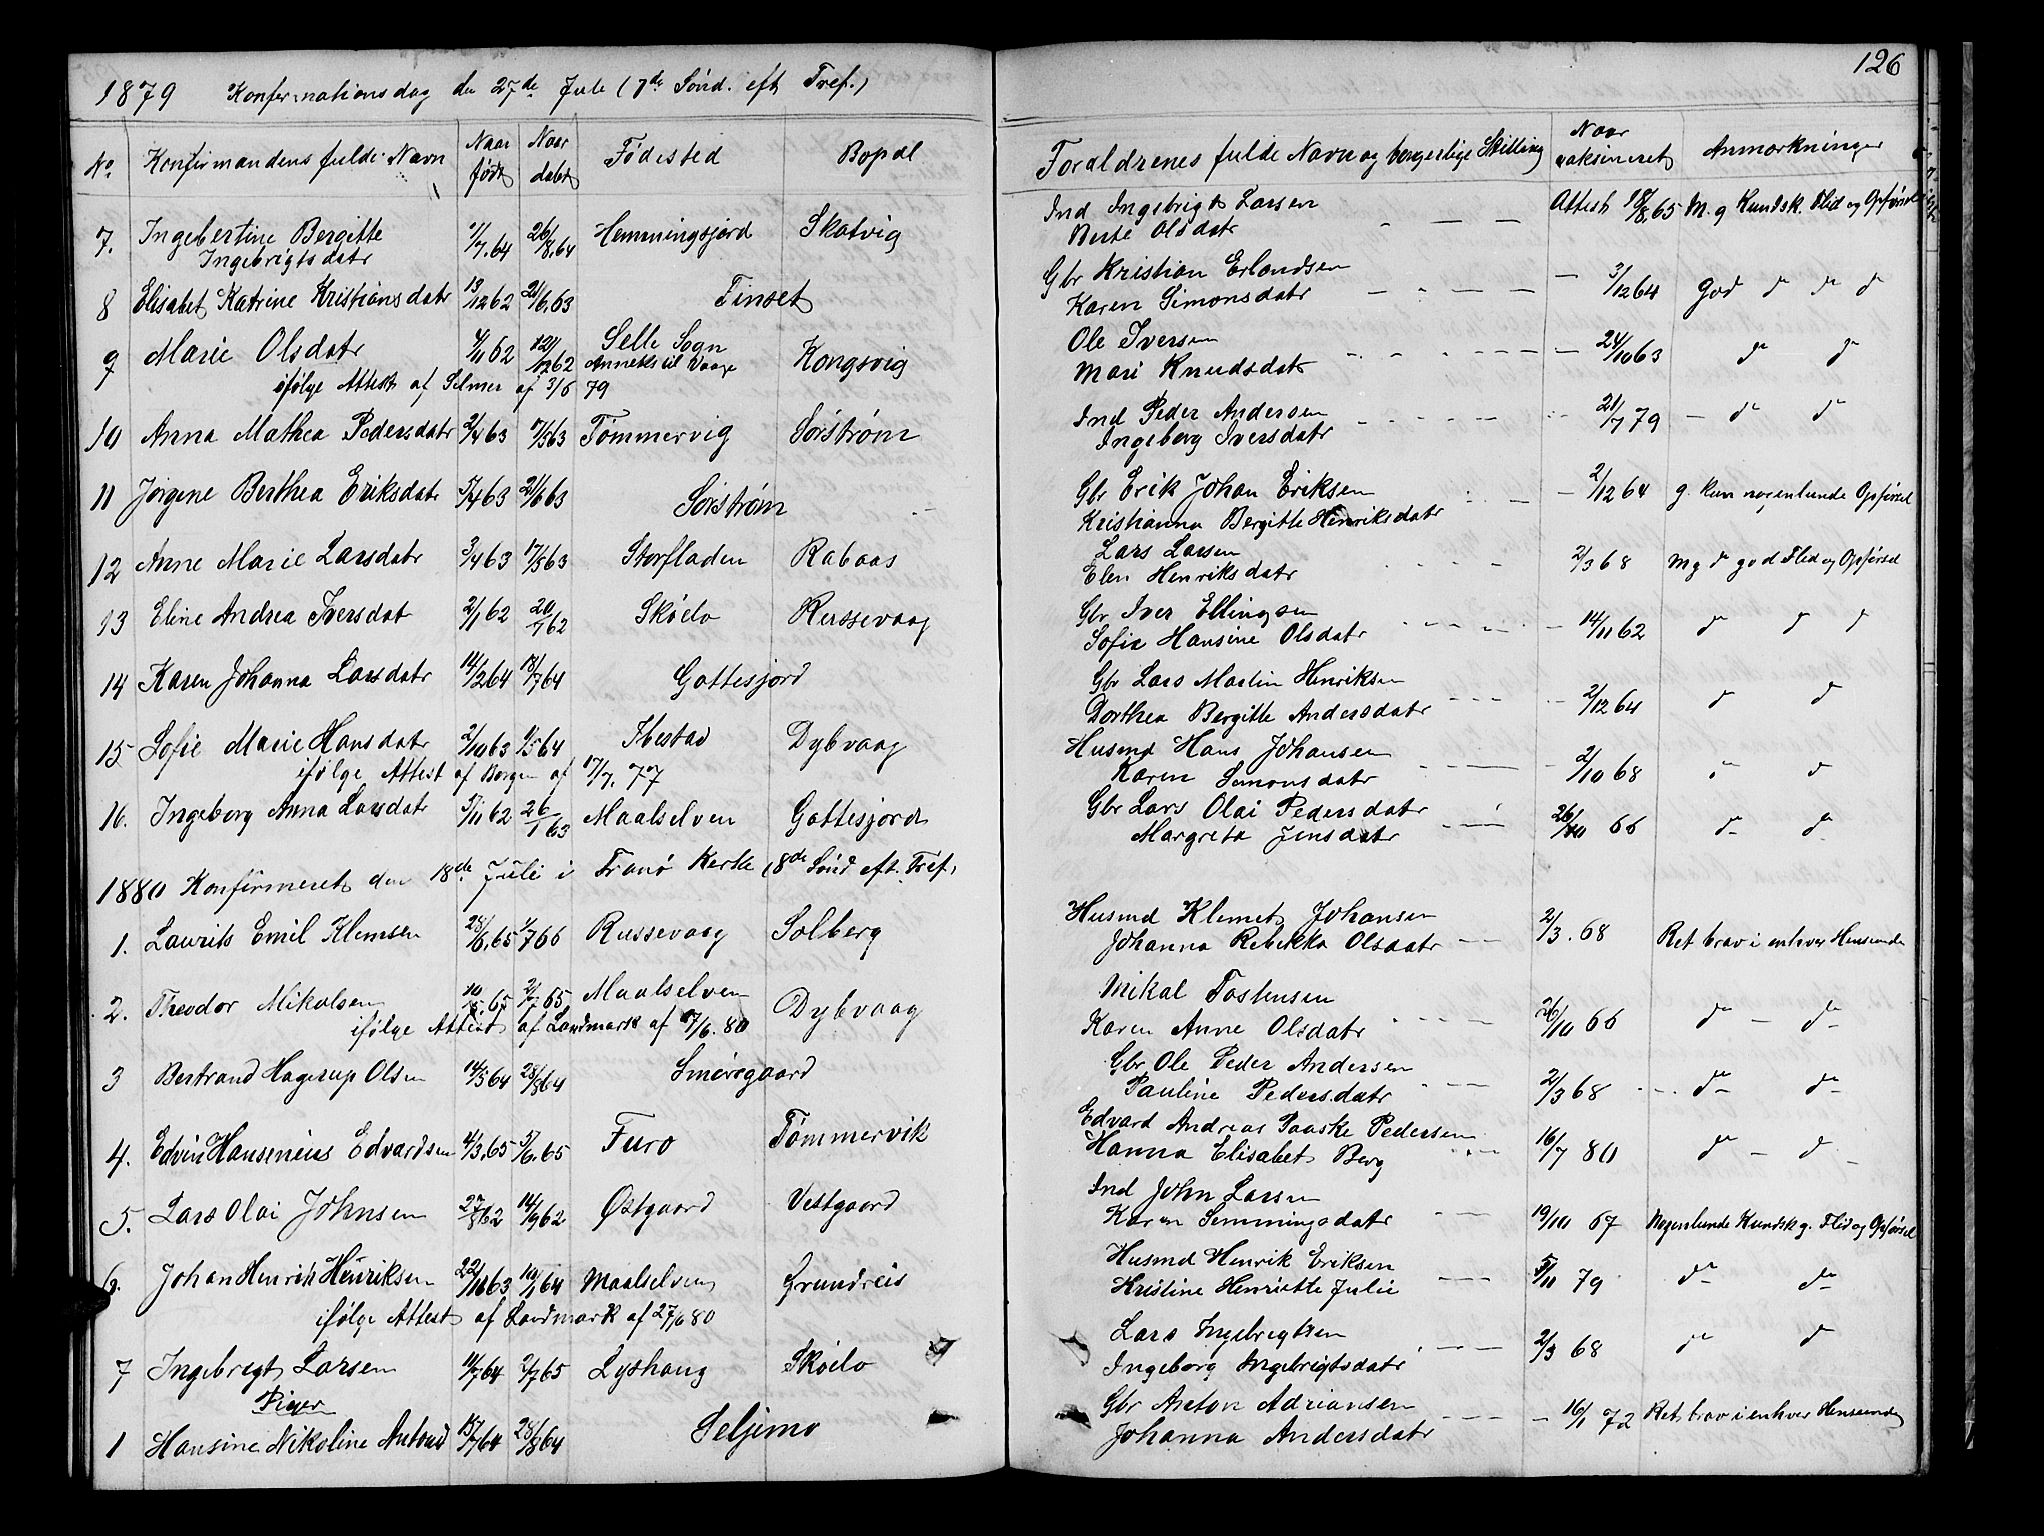 126
1879 Konfermationsdag de 27de Jule (7de Sönd. eft Tref.)
No Konfirmandens fulde Navn Naar födt Naar döbt Födested Bopæl Forældrenes fulde Navn og borgerlige Stilling Naar vaksineret Anmærkninger
7. Ingebertine Bergitte 1/7.64 26/8.64 Hemmingsjord Skatvig Ind Ingebrigt Larsen Attest 18/8.65 M. g Kundsk. Flid og Opførsel
Ingebrigtsdatr Berte Olsdatr
8 Elisabet Katrine Kristiansdatr 13/12 62 21/6.63 Finset Gbr Kristian Erlandsen 3/12 64 God do do do
Karen Simonsdatr
9 Marie Olsdatr 4/11 62 12/62 Selle Sogn Kongsvig Ole Iversen 24/10 63 do do
Anneks til Vaage Mari Knudsdatr
ifølge Attest af Selmer af 3/6 79
10 Anna Mathea Pedersdatr 2/4 63 7/5 63 Tömmervig Sörström Ind Peder Andersen 21/7 79 do do
Ingeborg Iversdatr
11 Jörgine Berthea Eriksdatr 5/4 63 21/6 63 Sörström Gbr Erik Johan Eriksen 2/12 64 g. kun nogenlunde Opförsel
Kristianna Bergitte Henriksdatr
12 Anne Marie Larsdatr 3/4 63 17/5 63 Storfladen Rabaas Lars Larsen 2/3 68 Mg do god Flid og Opførsel
Elen Henriksdatr
13 Eline Andrea Iversdat 2/1 62 20/7 62 Sköelv Russevaag Gbr Iver Ellingsen 14/11 62 do do do
Sofie Hansine Olsdatr
14 Karen Johanna Larsdatr 14/2 64 18/7 64 Gottesjord Gbr Lars Martin Henriksen 2/12 64 do do
Dorthea Bergitte Andersdatr
15 Sofie Marie Hansdatr 2/10 63 1/5 64 Ibestad Dybvaag Husmd Hans Johansen 2/10 68 do do
ifølge Attest af Borgen af 17/7. 77 Karen Simonsdatr
16. Ingeborg Anna Larsdatr 5/11 62 26/1 63 Maalselven Gottesjord Gbr Lars Olai Pedersdatr 26/10 66 do do
Margreta Jensdatr
1880 Konfirmeret den 18de Juli i Tranö Kerke (8de Sönd eft. Tref.)
1. Laurits Emil Klemsen 28/6.65 1/7 66 Russevaag Solberg Husmd Klemet Johansen 2/3. 68 Ret brav i enhver Henseende
Johanna Rebekka Olsdatr
2. Theodor Mikalsen 10/5.65 2/7 65 Maalselven Dybvaag Mikal Tostensen 26/10 66 do do
ifølge Attest af Landmark af 7/6. 80 Karen Anne Olsdatr
3 Bertrand Hagerup Olsen 14/5 64 28/8 64 Smöregaard Gbr Ole Peder Andersen 2/3 68 do do
Pauline Pedersdatr
4. Edvin Hansenius Edvardsen 4/3.65 5/6.65 Furö Tömmervik Edvard Andreas Paaske Pedersen 16/7 80 do do
Hanna Elisabet Berg
5. Lars Olai Johnsen 27/8 62 14/9 62 Østgaard Vestgaard Ind John Larsen 19/10 67 Nogenlunde Kundsk g. Flid og Opførsel
Karen Semmingsdatr
6. Johan Henrik Henriksen 22/10 63 10/1 64 Maalselven Grundreis Husmd Henrik Eriksen 5/11 79 do do
ifølge Attest af Landmark af 27/6 80 Kristine Henriette Julie
7 Ingebrigt Larsen 11/7 64 2/7 65 Lyshaug Sköelv Lars Ingebrigtsen 2/3 68 do do
Ingeborg Ingebrigtsdatr
Piger
1 Hansine Nikoline Antonsd 15/7 64 28/8 64 Seljemo Gbr Anton Adriansen 16/1 72 Ret brav i enhver Henseende
Johanna Andersdatr